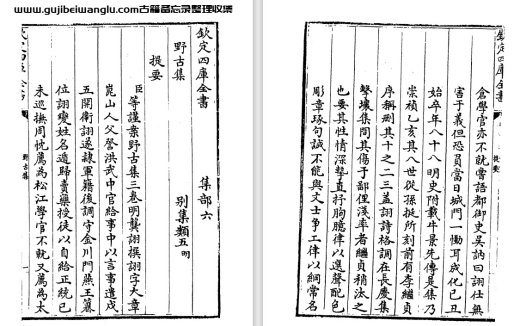 www.gujibeiwanglu.com古籍备忘录整理收集
欽定四庫全書　集部六
野古集　別集類五　明
提要
臣等謹案野古集三卷明龔詡撰詡字大章
崑山人父詧洪武中官給事中以言事遣戍
五開衛詡遂隸軍籍後調守金川門燕王篡
位詡變姓名遁歸賣藥授徒以自給正統己
未巡撫周忱薦為松江學官不就又薦為太
野古集
欽定四庫全書
提要
倉學官亦不就嘗語都御史吳訥曰詡仕無
害于義但恐負當日城門一慟耳成化己丑
始卒年八十八明史附載牛景先傳是集乃
崇禎乙亥其八世從孫挺所刻前有李繼貞
序稱刪其十之二三蓋詡詩格調在長慶集
擊壤集間其傷于鄙俚淺率者繼貞稍汰之
也要其性情深摯直抒胸臆律以選聲配色
彫章琢句誠不能與文士爭工律以綱常名